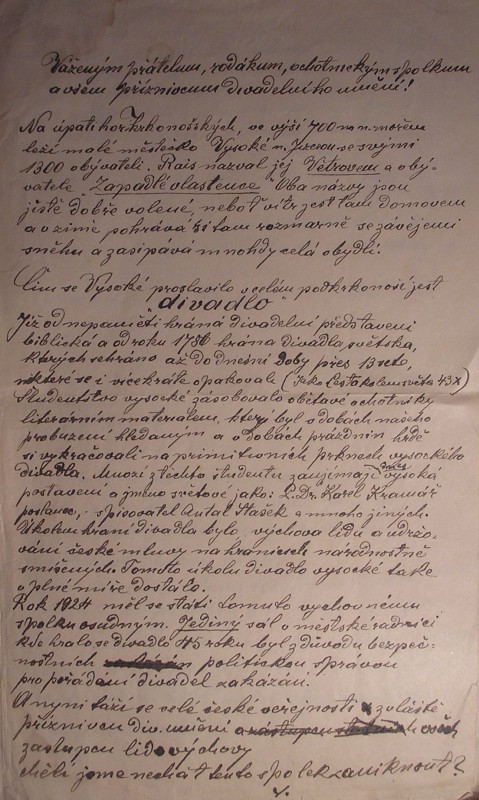 Váženým přátelum, rodákum, ochotnickým spolkum
a všem příznivcum divadelního umění!
Na úpatí hor Krkonošských, ve výši 700 m n. mořem
leží malé městečko Vysoké n. Jizerou se svými
1300 obyvateli. Rais nazval jej Větrovem a oby-
vatele "Zapadlé vlastence". Oba názvy jsou
jistě dobře volené, neboť vítr jest tam domovem
a v zimě pohrává si tam rozmarně se závějemi
sněhu a zasipává mnohdy celá obydlí.
Čím se Vysoké proslavilo v celém podkrkonoší jest
"divadlo"
Již od nepaměti hrána divadelní představení
biblická a od roku 1786 hrána divadla světská,
kterých sehráno až do dnešní doby přes 13 set,
některé se i vícekráte opakovale (jako Cesta kolem světa 43x)
Studentstvo vysocké zásobovalo obětavé ochotníky
literárním materiálem, který byl v dobách našeho
probuzení hledaným a v dobách prázdnin hrdě
si vykracovali na primitivních prknech vysockého
divadla. Mnozí z těchto studentu zaujímají dnes vysoká
postavení a jméno světové jako: Dr. Karel Kramář
poslanec, spisovatel Antal Stašek a mnoho jiných.
Úkolem hraní divadla bylo, výchova lidu a udržo-
vání české mluvy na hranicích národnostně
smíšených. Tomuto úkolu divadlo vysocké také
v plné míře dostálo.
Rok 1924 měl se státi tomuto výchovnému
spolku osudným. Jediný sál v městské radnici
kde hralo se divadlo 45 roku byl z důvodu bezpeč-
nostních politickou správou
pro pořádání divadel zakázán.
A nyní táží se celé české veřejnosti zvláště
příznivcu div. umění a všech
zástupcu lidovýchovy
chtěli jsme nechát tento spolek zaniknout?